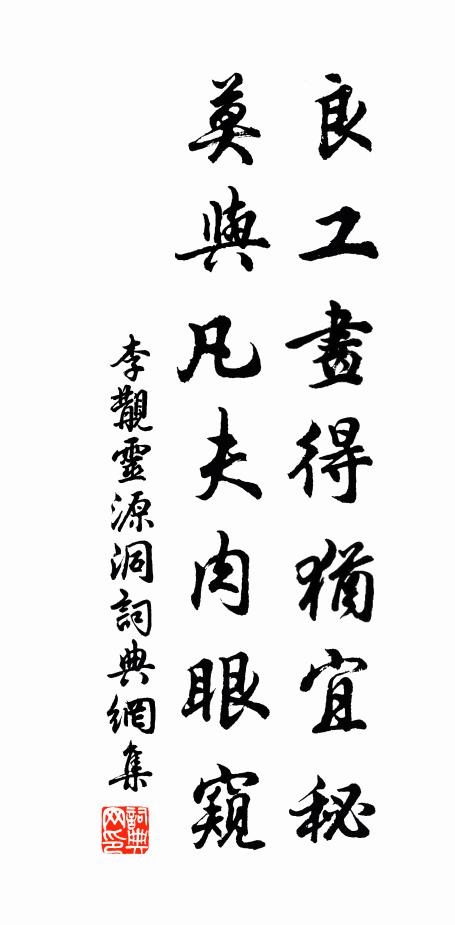 良工畫得猶宜秘
莫與凡夫肉眼窺
李觀靈源洞詞典網集
詞典网印